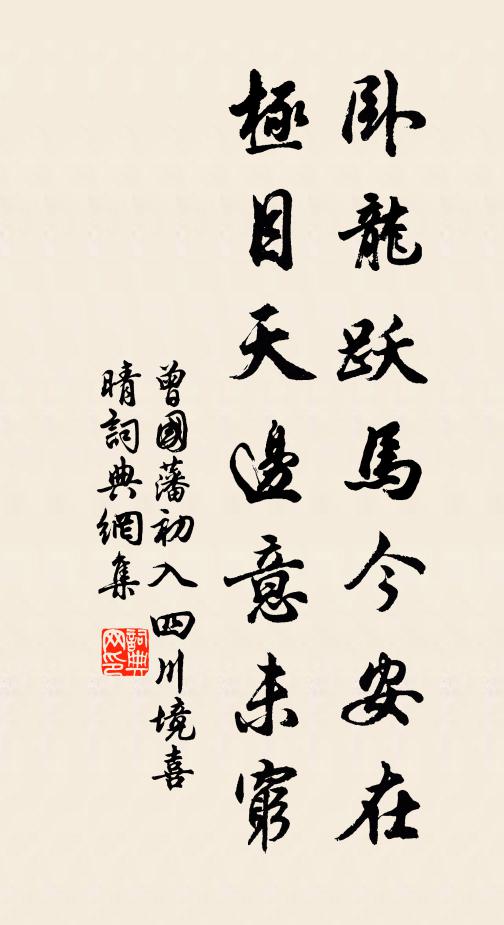 卧龍跃馬今安在
極目天邊意未窮
曾國藩初入四川境喜
晴詞典網集
詞典网印